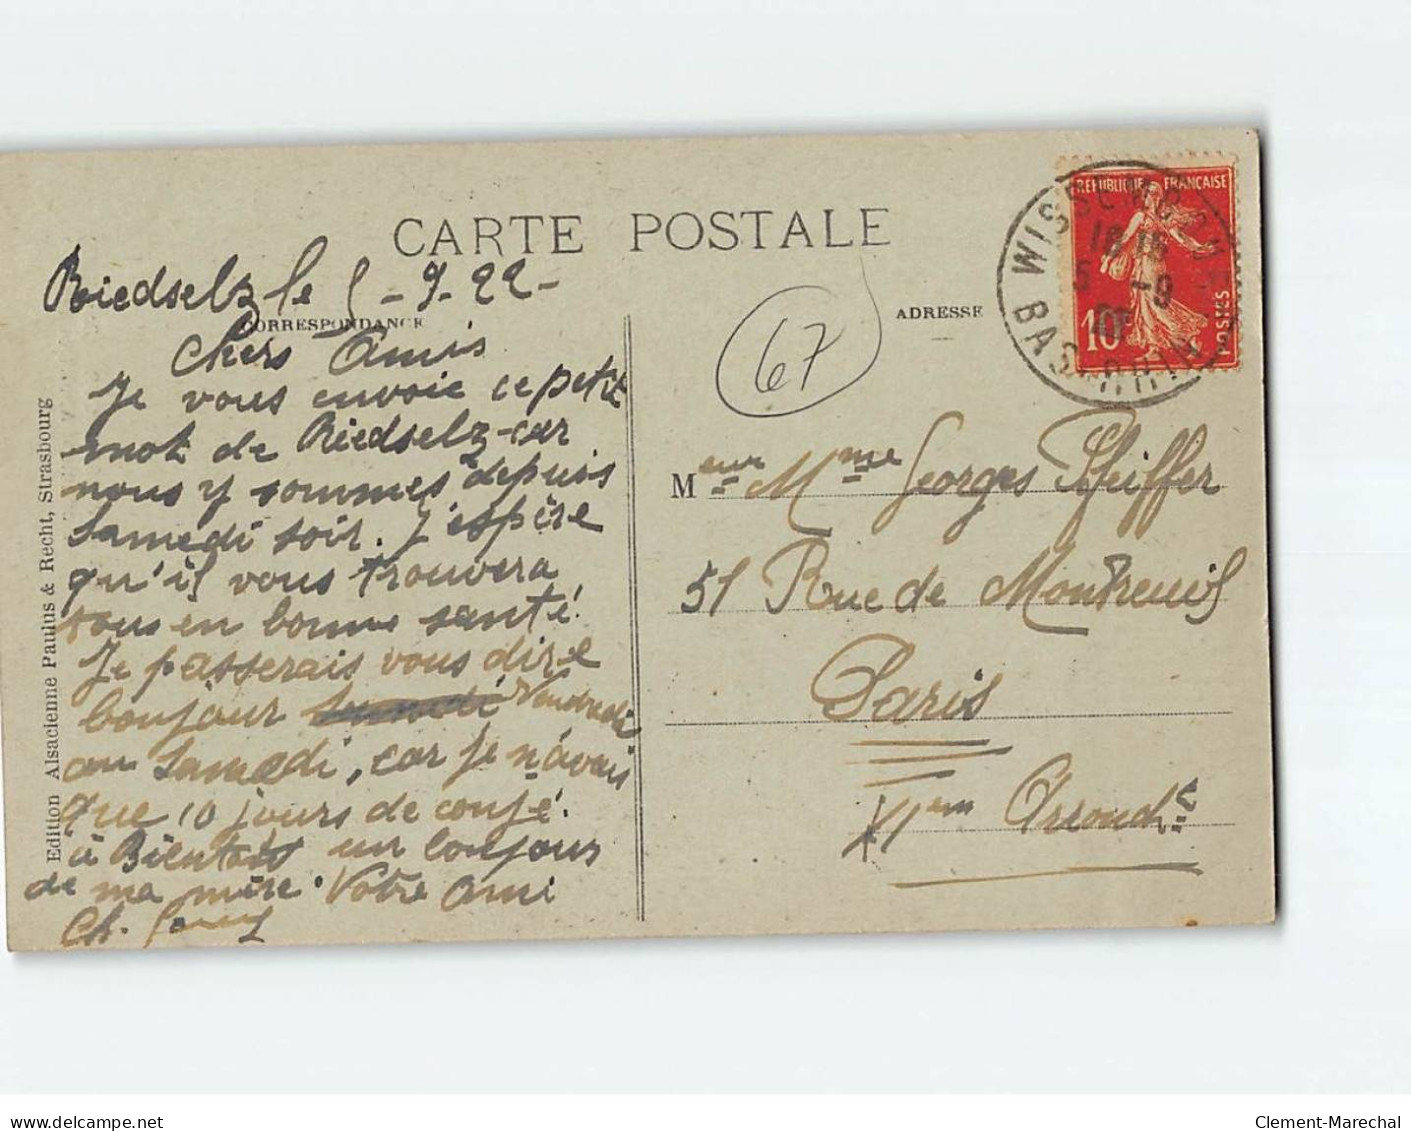 CARTE POSTALE
Riedselz le 5-9-22-
CORRESPONDANCE
ADRESSE
Chers Amis
Je vous envoie ce petit
mot de Riedselz car
nous y sommes depuis
Samedi soir. J'espère
qu'il vous trouvera
tous en bonne santé.
Je passerais vous dire
bonjour Vendredi
ou Samedi, car je n'avais
que 10 jours de congé.
à Bientôt un bonjour
de ma mère. Votre Ami
Ch.
67
REPUBLIQUE FRANÇAISE
10c
POSTES
WISSEMBOURG
18 15
5 -9
BAS-RHIN
Meur Mme Georges Pfeiffer
51 Rue de Montreuil
Paris
XIem Arrondt
Edition Alsacienne Paulus & Recht, Strasbourg
www.delcampe.net
Clement-Marechal